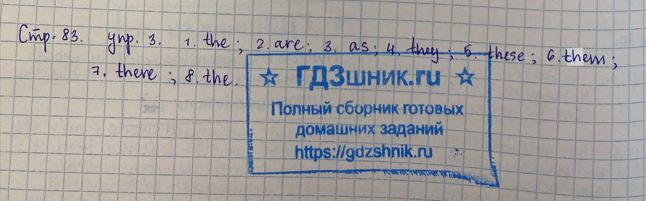 Стр. 83. упр. 3. 1. the; 2. are; 3. as; 4. they; 5. these; 6. them;
7. there; 8. the.
☆ ГДЗшник.ru ☆
Полный сборник готовых
домашних заданий
https://gdzshnik.ru